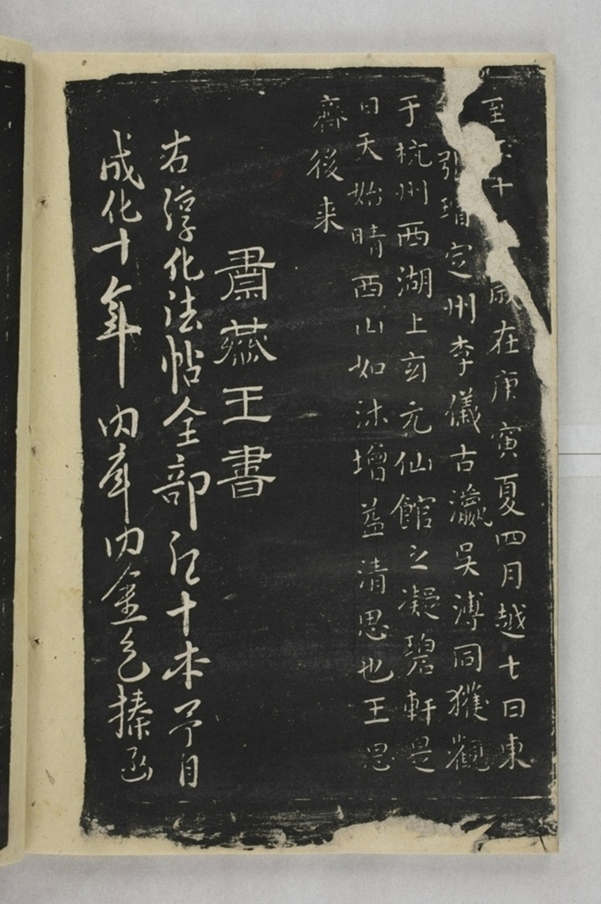 至 十 歲在庚寅夏四月越七日東
張瑄定州李儀古瀛吳溥同獲觀
于杭州西湖上玄元仙館之凝碧軒是
日天始晴西山如沐增益清思也王思
齊後来
肅藩王書
右淳化法帖全部紅十本予自
成化十年內府內